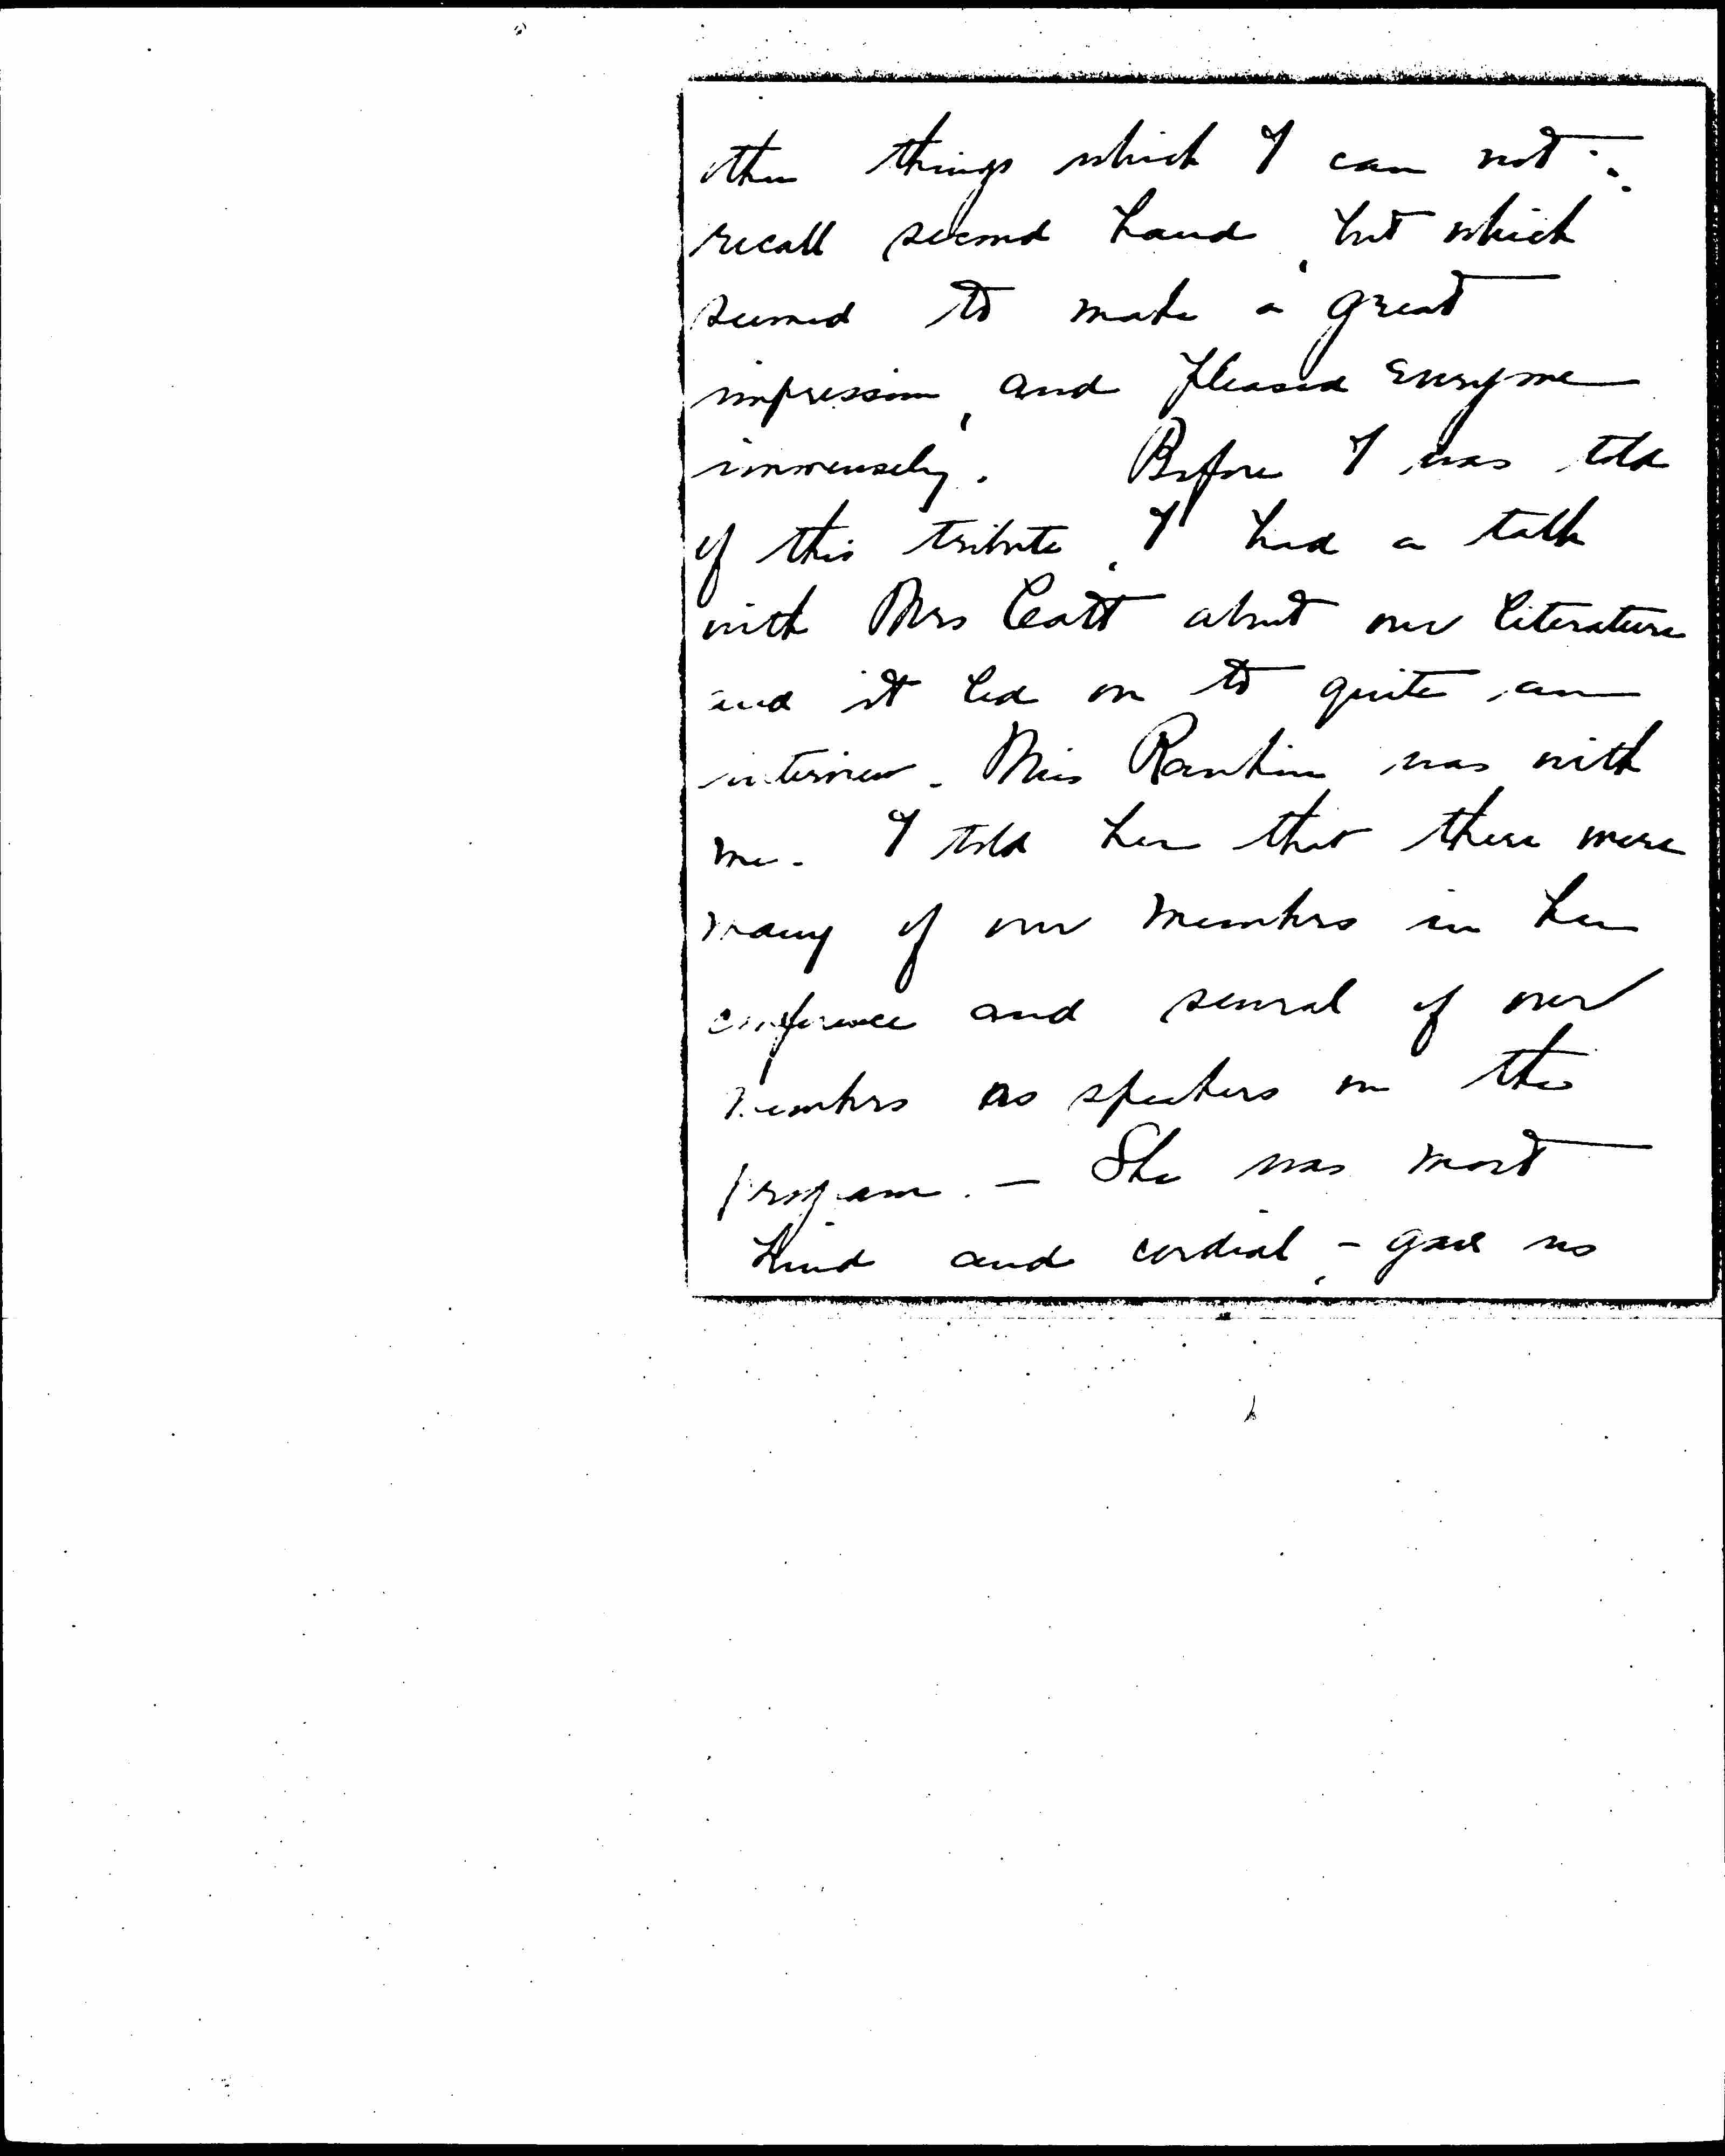 other things which I can not
recall second hand, but which
seemed to make a great
impression, and pleased everyone
immensely. Before I was told
of this tribute, I had a talk
with Mrs Catt about our literature
and it led on to quite an
interview. Miss Rankin was with
me. I told her that there were
many of our members in her
conference and several of our
members as speakers on the
program. — She was most
kind and cordial, - gave us